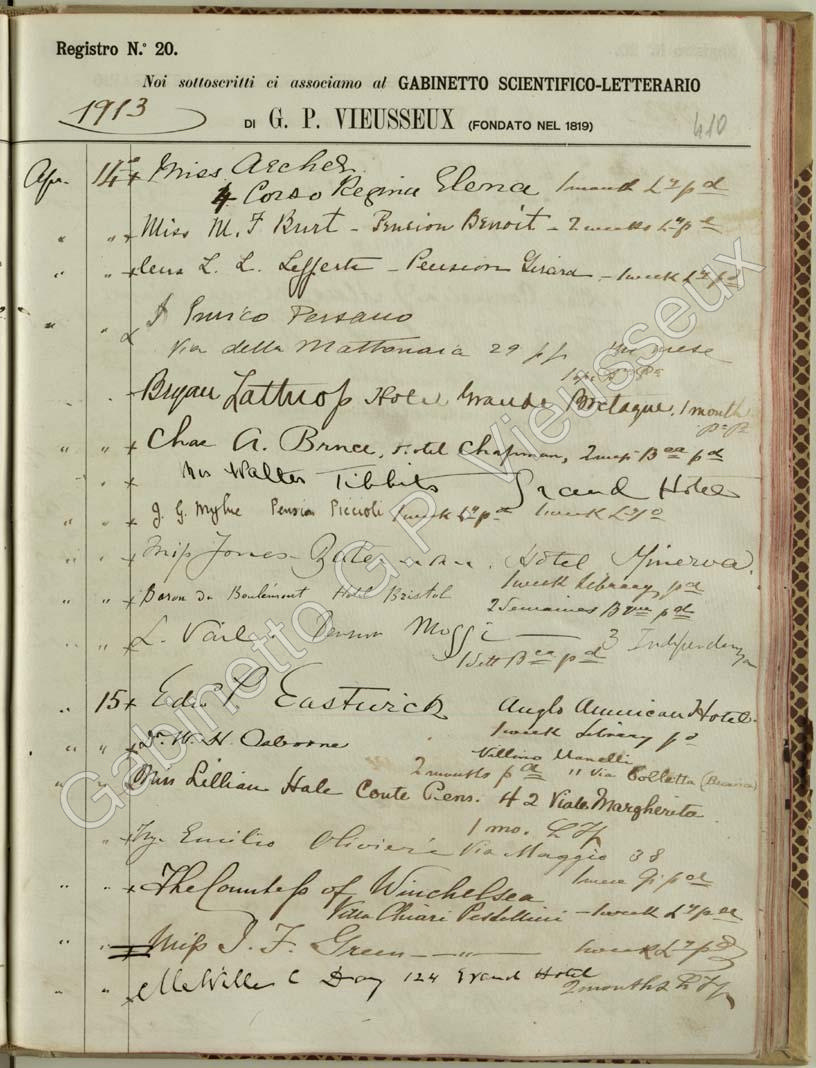 Registro N.º 20.
Noi sottoscritti ci associamo al GABINETTO SCIENTIFICO-LETTERARIO
1913
DI G. P. VIEUSSEUX (FONDATO NEL 1819)
410
Apr. 14 Miss Archer
4 Corso Regina Elena 1 month Ly pd
" " Miss M. F. Burt - Pension Benoit - 2 weeks Ly pd
" " L. L. Lefferts - Pension Girard - 1 week Ly pd
" " Enrico Persano
Via della Mattonaia 29 pp mese
Bryan Lathrop Hotel Grande Bretagne, 1 month
" " Chas A. Bruce, Hotel Chapman, pd
" Mrs Walter Tibbits Grand Hotel
" " J. G. Mylne Pension Piccioli 1 week Ly pd 1 week Ly
" " Miss Jones-Bateman. Hotel Minerva.
1 week Library pd
" " Baron du Boulémont Hotel Bristol
2 Semaines pd
" " L. Pension Moggi 3 Independenza
pd
" 15 Edw P. Eastwick Anglo American Hotel
1 week Library pd
" " Dr. W. H. Osborne
2 months pd Villino 11 Via Colletta
" " Miss Lillian Hale Conte Pens. 42 Viale Margherita
1 mo.
" Emilio Via Maggio 38
pd
" " The Countess of Winchelsea
Villa Chiari Pestellini - 1 week Ly pd
" " Miss J. F. Green - " - 1 week Ly pd
" " C Day 124 Grand Hotel
2 months
Gabinetto G.P. Vieusseux